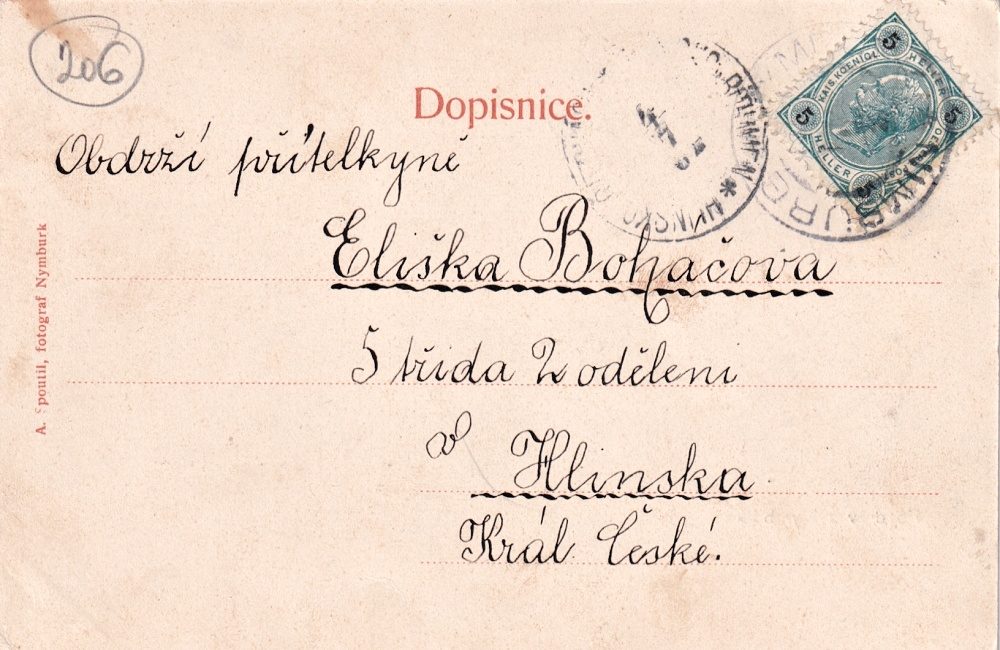 206
Dopisnice.
5 HELLER 5
KAIS. KOENIGL.
HELLER 5
Obdrží přítelkyně
Eliška Bohačova
5 třida 2 oděleni
v Hlinska
Král České.
A. Spoutil, fotograf Nymburk